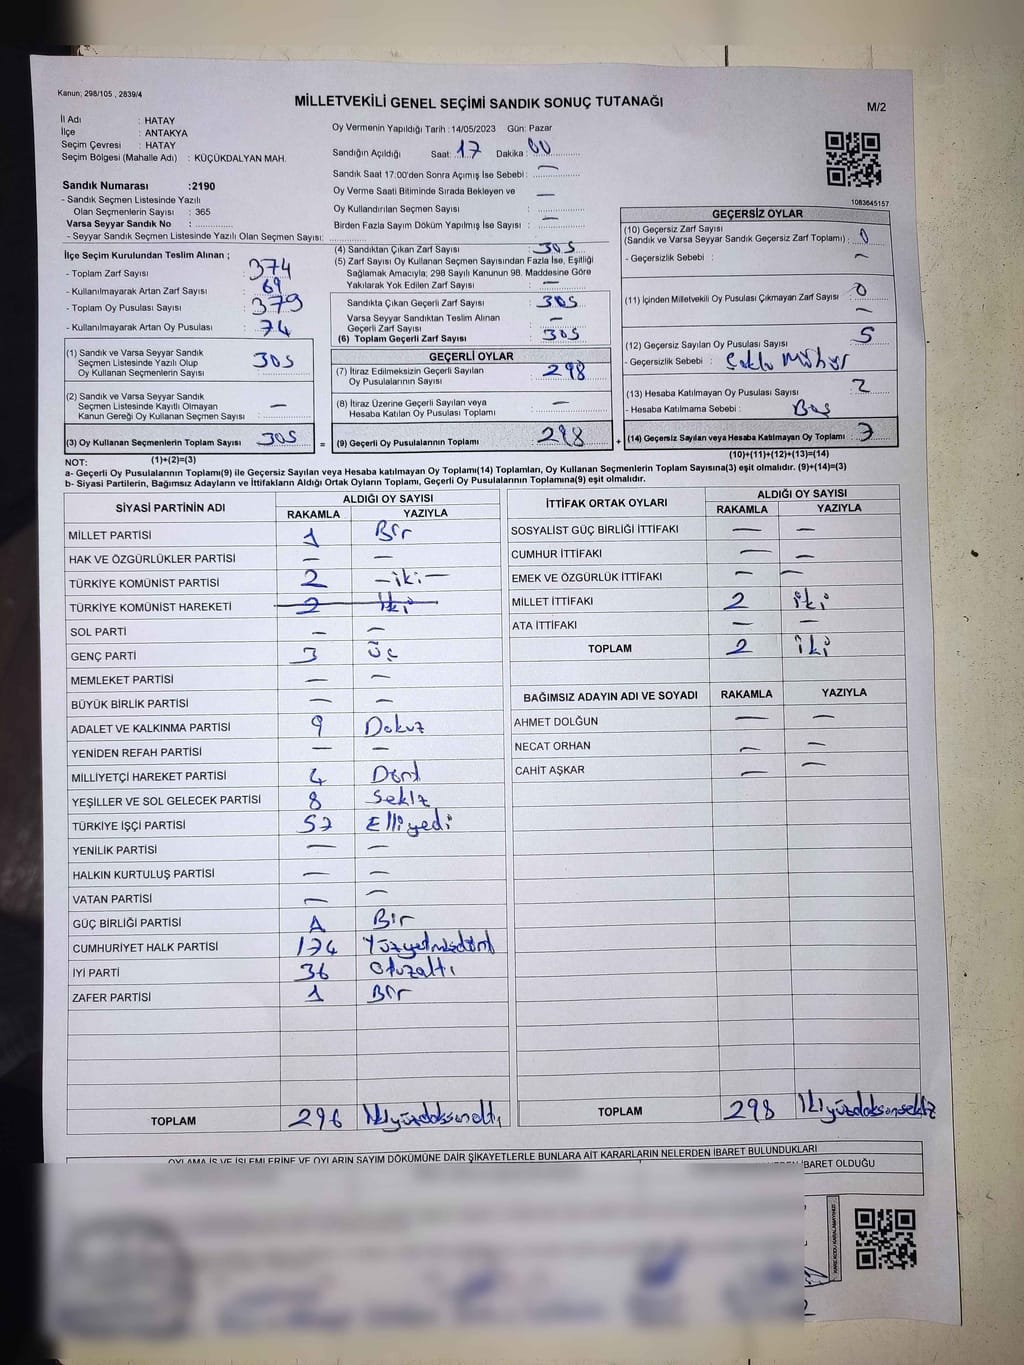 Kanun; 298/105 , 2839/4
MİLLETVEKİLİ GENEL SEÇİMİ SANDIK SONUÇ TUTANAĞI
M/2
İl Adı : HATAY
İlçe : ANTAKYA
Seçim Çevresi : HATAY
Seçim Bölgesi (Mahalle Adı) : KÜÇÜKDALYAN MAH.
Sandık Numarası :2190
- Sandık Seçmen Listesinde Yazılı
Olan Seçmenlerin Sayısı : 365
Varsa Seyyar Sandık No : ............
- Seyyar Sandık Seçmen Listesinde Yazılı Olan Seçmen Sayısı:
Oy Vermenin Yapıldığı Tarih : 14/05/2023 Gün: Pazar
Sandığın Açıldığı Saat: 17 Dakika: 00
Sandık Saat 17.00'den Sonra Açımış İse Sebebi : —
Oy Verme Saati Bitiminde Sırada Bekleyen ve —
Oy Kullandırılan Seçmen Sayısı :
Birden Fazla Sayım Döküm Yapılmış İse Sayısı : —
1083645157
İlçe Seçim Kurulundan Teslim Alınan ;
- Toplam Zarf Sayısı : 374
- Kullanılmayarak Artan Zarf Sayısı : 69
- Toplam Oy Pusulası : 379
- Kullanılmayarak Artan Oy Pusulası : 74
(1) Sandık ve Varsa Seyyar Sandık
Seçmen Listesinde Yazılı Olup
Oy Kullanan Seçmenlerin Sayısı : 305
(2) Sandık ve Varsa Seyyar Sandık
Seçmen Listesinde Kayıtlı Olmayan
Kanun Gereği Oy Kullanan Seçmen Sayısı : —
(3) Oy Kullanan Seçmenlerin Toplam Sayısı : 305 =
(1)+(2)=(3)
(4) Sandıktan Çıkan Zarf Sayısı : 305
(5) Zarf Sayısı Oy Kullanan Seçmen Sayısından Fazla İse, Eşitliği
Sağlamak Amacıyla; 298 Sayılı Kanunun 98. Maddesine Göre
Yakılarak Yok Edilen Zarf Sayısı : —
Sandıkta Çıkan Geçerli Zarf Sayısı : 305
Varsa Seyyar Sandıktan Teslim Alınan
Geçerli Zarf Sayısı : —
(6) Toplam Geçerli Zarf Sayısı : 305
GEÇERLİ OYLAR
(7) İtiraz Edilmeksizin Geçerli Sayılan
Oy Pusulalarının Sayısı : 298
(8) İtiraz Üzerine Geçerli Sayılan veya
Hesaba Katılan Oy Pusulası Toplamı : —
(9) Geçerli Oy Pusulalarının Toplamı : 298 +
GEÇERSİZ OYLAR
(10) Geçersiz Zarf Sayısı
(Sandık ve Varsa Seyyar Sandık Geçersiz Zarf Toplamı) : 0
- Geçersizlik Sebebi : —
(11) İçinden Milletvekili Oy Pusulası Çıkmayan Zarf Sayısı : 0
—
(12) Geçersiz Sayılan Oy Pusulası Sayısı : 5
- Geçersizlik Sebebi : Mühür
(13) Hesaba Katılmayan Oy Pusulası Sayısı : 2
- Hesaba Katılmama Sebebi : Boş
(14) Geçersiz Sayılan veya Hesaba Katılmayan Oy Toplamı : 7
(10)+(11)+(12)+(13)=(14)
NOT:
a- Geçerli Oy Pusulalarının Toplamı(9) ile Geçersiz Sayılan veya Hesaba katılmayan Oy Toplamı(14) Toplamları, Oy Kullanan Seçmenlerin Toplam Sayısına(3) eşit olmalıdır. (9)+(14)=(3)
b- Siyasi Partilerin, Bağımsız Adayların ve İttifakların Aldığı Oyların Toplamı, Geçerli Oy Pusulalarının Toplamına(9) eşit olmalıdır.
SİYASİ PARTİNİN ADI ALDIĞI OY SAYISI
RAKAMLA YAZIYLA
MİLLET PARTİSİ 1 Bir
HAK VE ÖZGÜRLÜKLER PARTİSİ — —
TÜRKİYE KOMÜNİST PARTİSİ 2 -iki-
TÜRKİYE KOMÜNİST HAREKETİ 2 iki
SOL PARTİ — —
GENÇ PARTİ 3 üç
MEMLEKET PARTİSİ — —
BÜYÜK BİRLİK PARTİSİ — —
ADALET VE KALKINMA PARTİSİ 9 Dokuz
YENİDEN REFAH PARTİSİ — —
MİLLİYETÇİ HAREKET PARTİSİ 4 Dört
YEŞİLLER VE SOL GELECEK PARTİSİ 8 Sekiz
TÜRKİYE İŞÇİ PARTİSİ 57 Elliyedi
YENİLİK PARTİSİ — —
HALKIN KURTULUŞ PARTİSİ — —
VATAN PARTİSİ — —
GÜÇ BİRLİĞİ PARTİSİ 1 Bir
CUMHURİYET HALK PARTİSİ 174 Yüzyetmişdört
İYİ PARTİ 36 Otuzaltı
ZAFER PARTİSİ 1 Bir
TOPLAM 296 İkiyüzdoksanaltı
İTTİFAK ORTAK OYLARI ALDIĞI OY SAYISI
RAKAMLA YAZIYLA
SOSYALİST GÜÇ BİRLİĞİ İTTİFAKI — —
CUMHUR İTTİFAKI — —
EMEK VE ÖZGÜRLÜK İTTİFAKI — —
MİLLET İTTİFAKI 2 iki
ATA İTTİFAKI — —
TOPLAM 2 iki
BAĞIMSIZ ADAYIN ADI VE SOYADI RAKAMLA YAZIYLA
AHMET DOLĞUN — —
NECAT ORHAN — —
CAHİT AŞKAR — —
TOPLAM 298 İkiyüzdoksansekiz
OYLAMA İŞ VE İŞLEMLERİNE VE OYLARIN SAYIM DÖKÜMÜNE DAİR ŞİKAYETLERLE BUNLARA AİT KARARLARIN NELERDEN İBARET BULUNDUKLARI
İBARET OLDUĞU